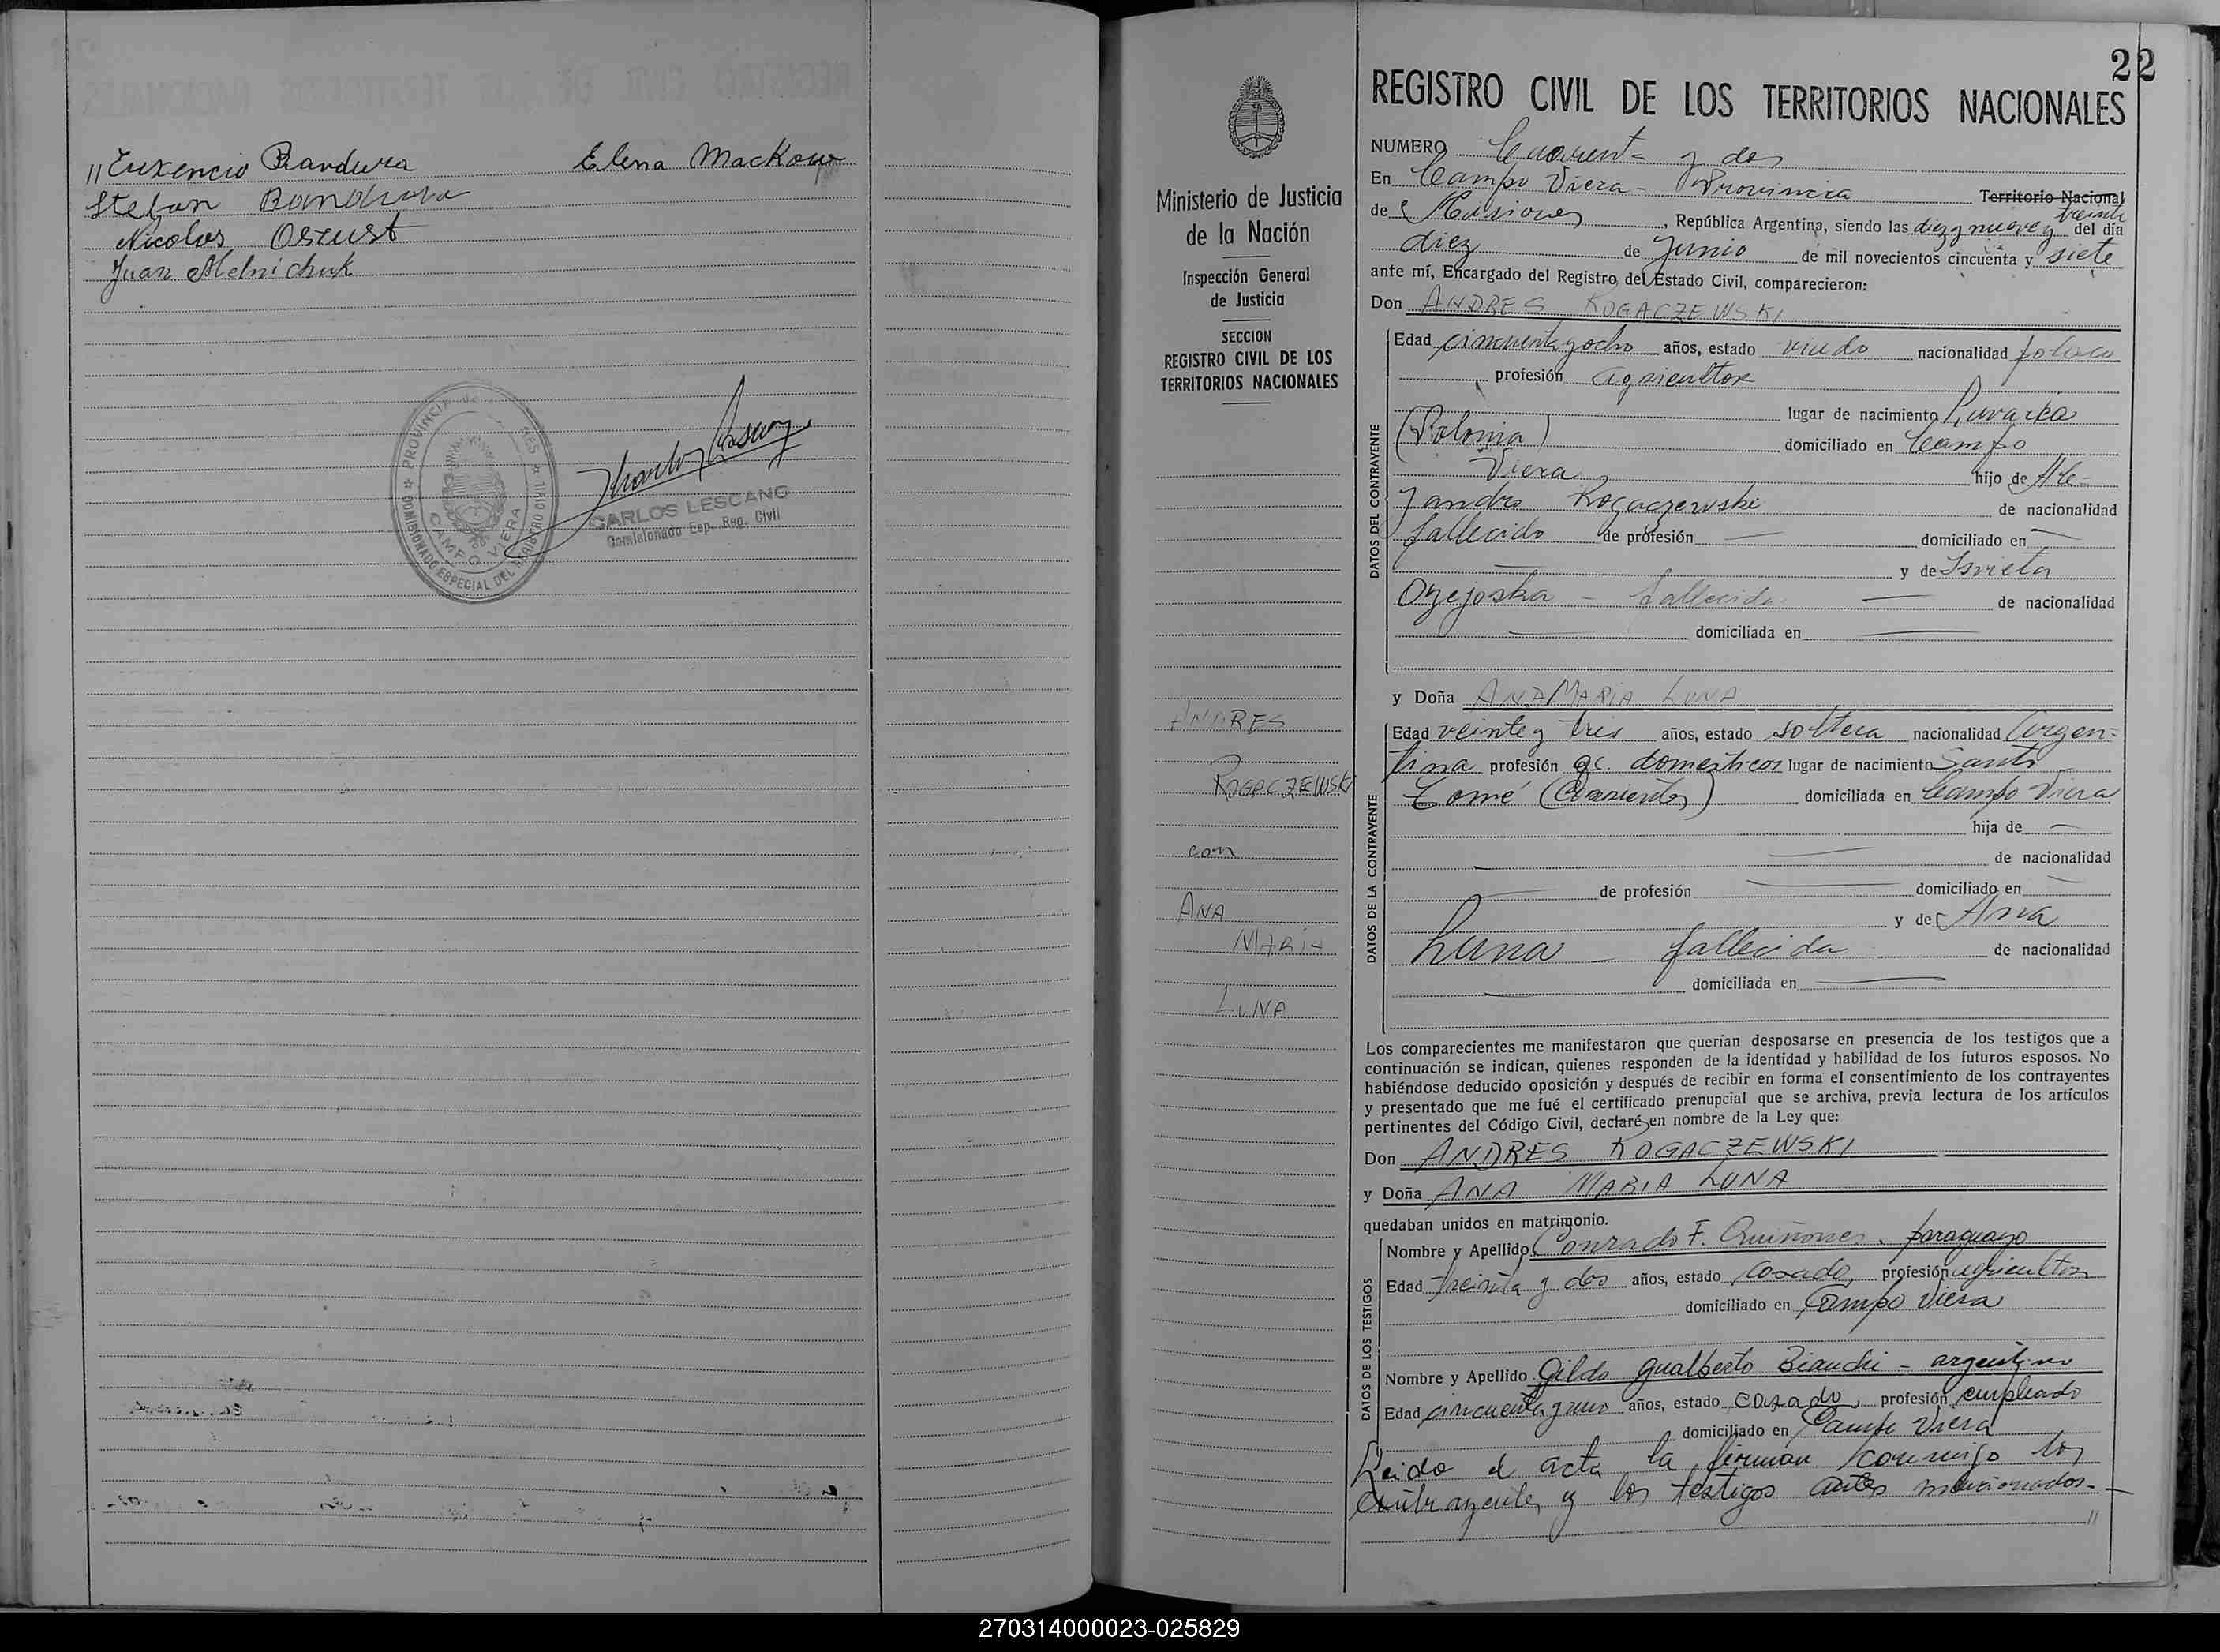 " Euxencio Bandura Elena Mackow
Stefan Bandura
Nicolas Oszust
Juan Melnichuk
PROVINCIA DE MISIONES
CAMPO VIERA
COMISIONADO ESPECIAL DEL REGISTRO CIVIL
CARLOS LESCANO
Comisionado Esp. Reg. Civil
Ministerio de Justicia
de la Nación
Inspección General
de Justicia
SECCION
REGISTRO CIVIL DE LOS
TERRITORIOS NACIONALES
ANDRES
ROGACZEWSKI
con
ANA
MARIA
LUNA
22
REGISTRO CIVIL DE LOS TERRITORIOS NACIONALES
NUMERO Cuarenta y dos
En Campo Viera - Provincia Territorio Nacional
de Misiones, República Argentina, siendo las diez y nueve y treinta del día
diez de Junio de mil novecientos cincuenta y siete
ante mí, Encargado del Registro del Estado Civil, comparecieron:
Don ANDRES ROGACZEWSKI
DATOS DEL CONTRAYENTE
Edad cincuenta y ocho años, estado viudo nacionalidad polaca
profesión agricultor
lugar de nacimiento
(Polonia) domiciliado en Campo
Viera hijo de Ale-
jandro Rogaczewski de nacionalidad
fallecido de profesión — domiciliado en —
— y de
— fallecida — de nacionalidad
— domiciliada en —
y Doña ANA MARIA LUNA
DATOS DE LA CONTRAYENTE
Edad veinte y tres años, estado soltera nacionalidad Argen-
tina profesión qc. domesticos lugar de nacimiento Santo
Tomé (Corrientes) domiciliada en Campo Viera
hija de —
— de nacionalidad
— de profesión — domiciliado en —
y de Ana
Luna — fallecida de nacionalidad
— domiciliada en —
Los comparecientes me manifestaron que querían desposarse en presencia de los testigos que a
continuación se indican, quienes responden de la identidad y habilidad de los futuros esposos. No
habiéndose deducido oposición y después de recibir en forma el consentimiento de los contrayentes
y presentado que me fué el certificado prenupcial que se archiva, previa lectura de los artículos
pertinentes del Código Civil, declaré en nombre de la Ley que:
Don ANDRES ROGACZEWSKI
y Doña ANA MARIA LUNA
quedaban unidos en matrimonio.
DATOS DE LOS TESTIGOS
Nombre y Apellido Conrado F. Quiñones. paraguayo
Edad treinta y dos años, estado casado, profesión agricultor
domiciliado en Campo Viera
Nombre y Apellido Gildo Gualberto Bianchi - argentino
Edad cincuenta y uno años, estado casado, profesión empleado
domiciliado en Campo Viera
Leido el acta la firman conmigo los
contrayentes y los testigos antes mencionados.-
"
270314000023-025829